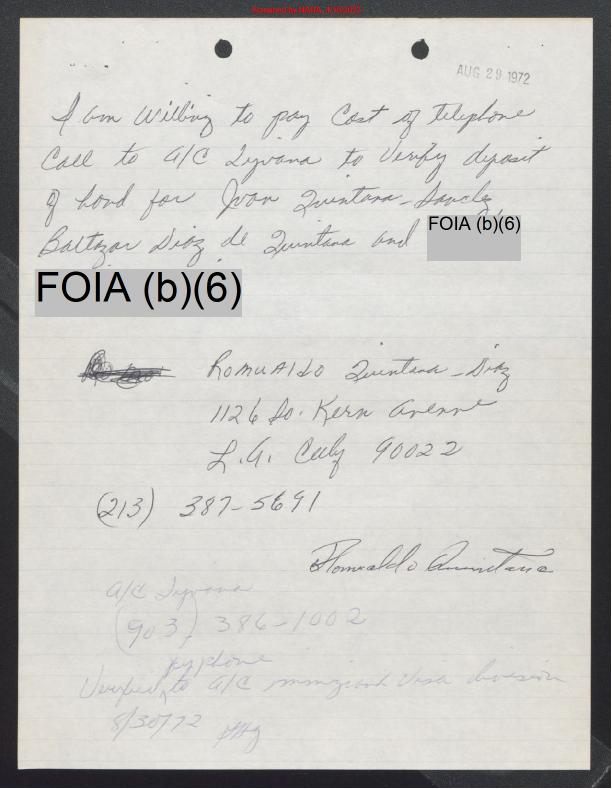 AUG 29 1972
I am willing to pay Cost of telephone
Call to A/C Tijuana to Verify deposit
of bond for Juan Quintana-Sanchez
Baltazar Diaz de Quintana and FOIA (b)(6)
FOIA (b)(6)
Romualdo Quintana-Diaz
1126 So. Kern Avenue
L.A. Calif 90022
(213) 387-5691
Romualdo Quintana
A/C Tijuana
(903) 386-1002
by phone
Verified to A/C immigrant Visa division
8/30/72